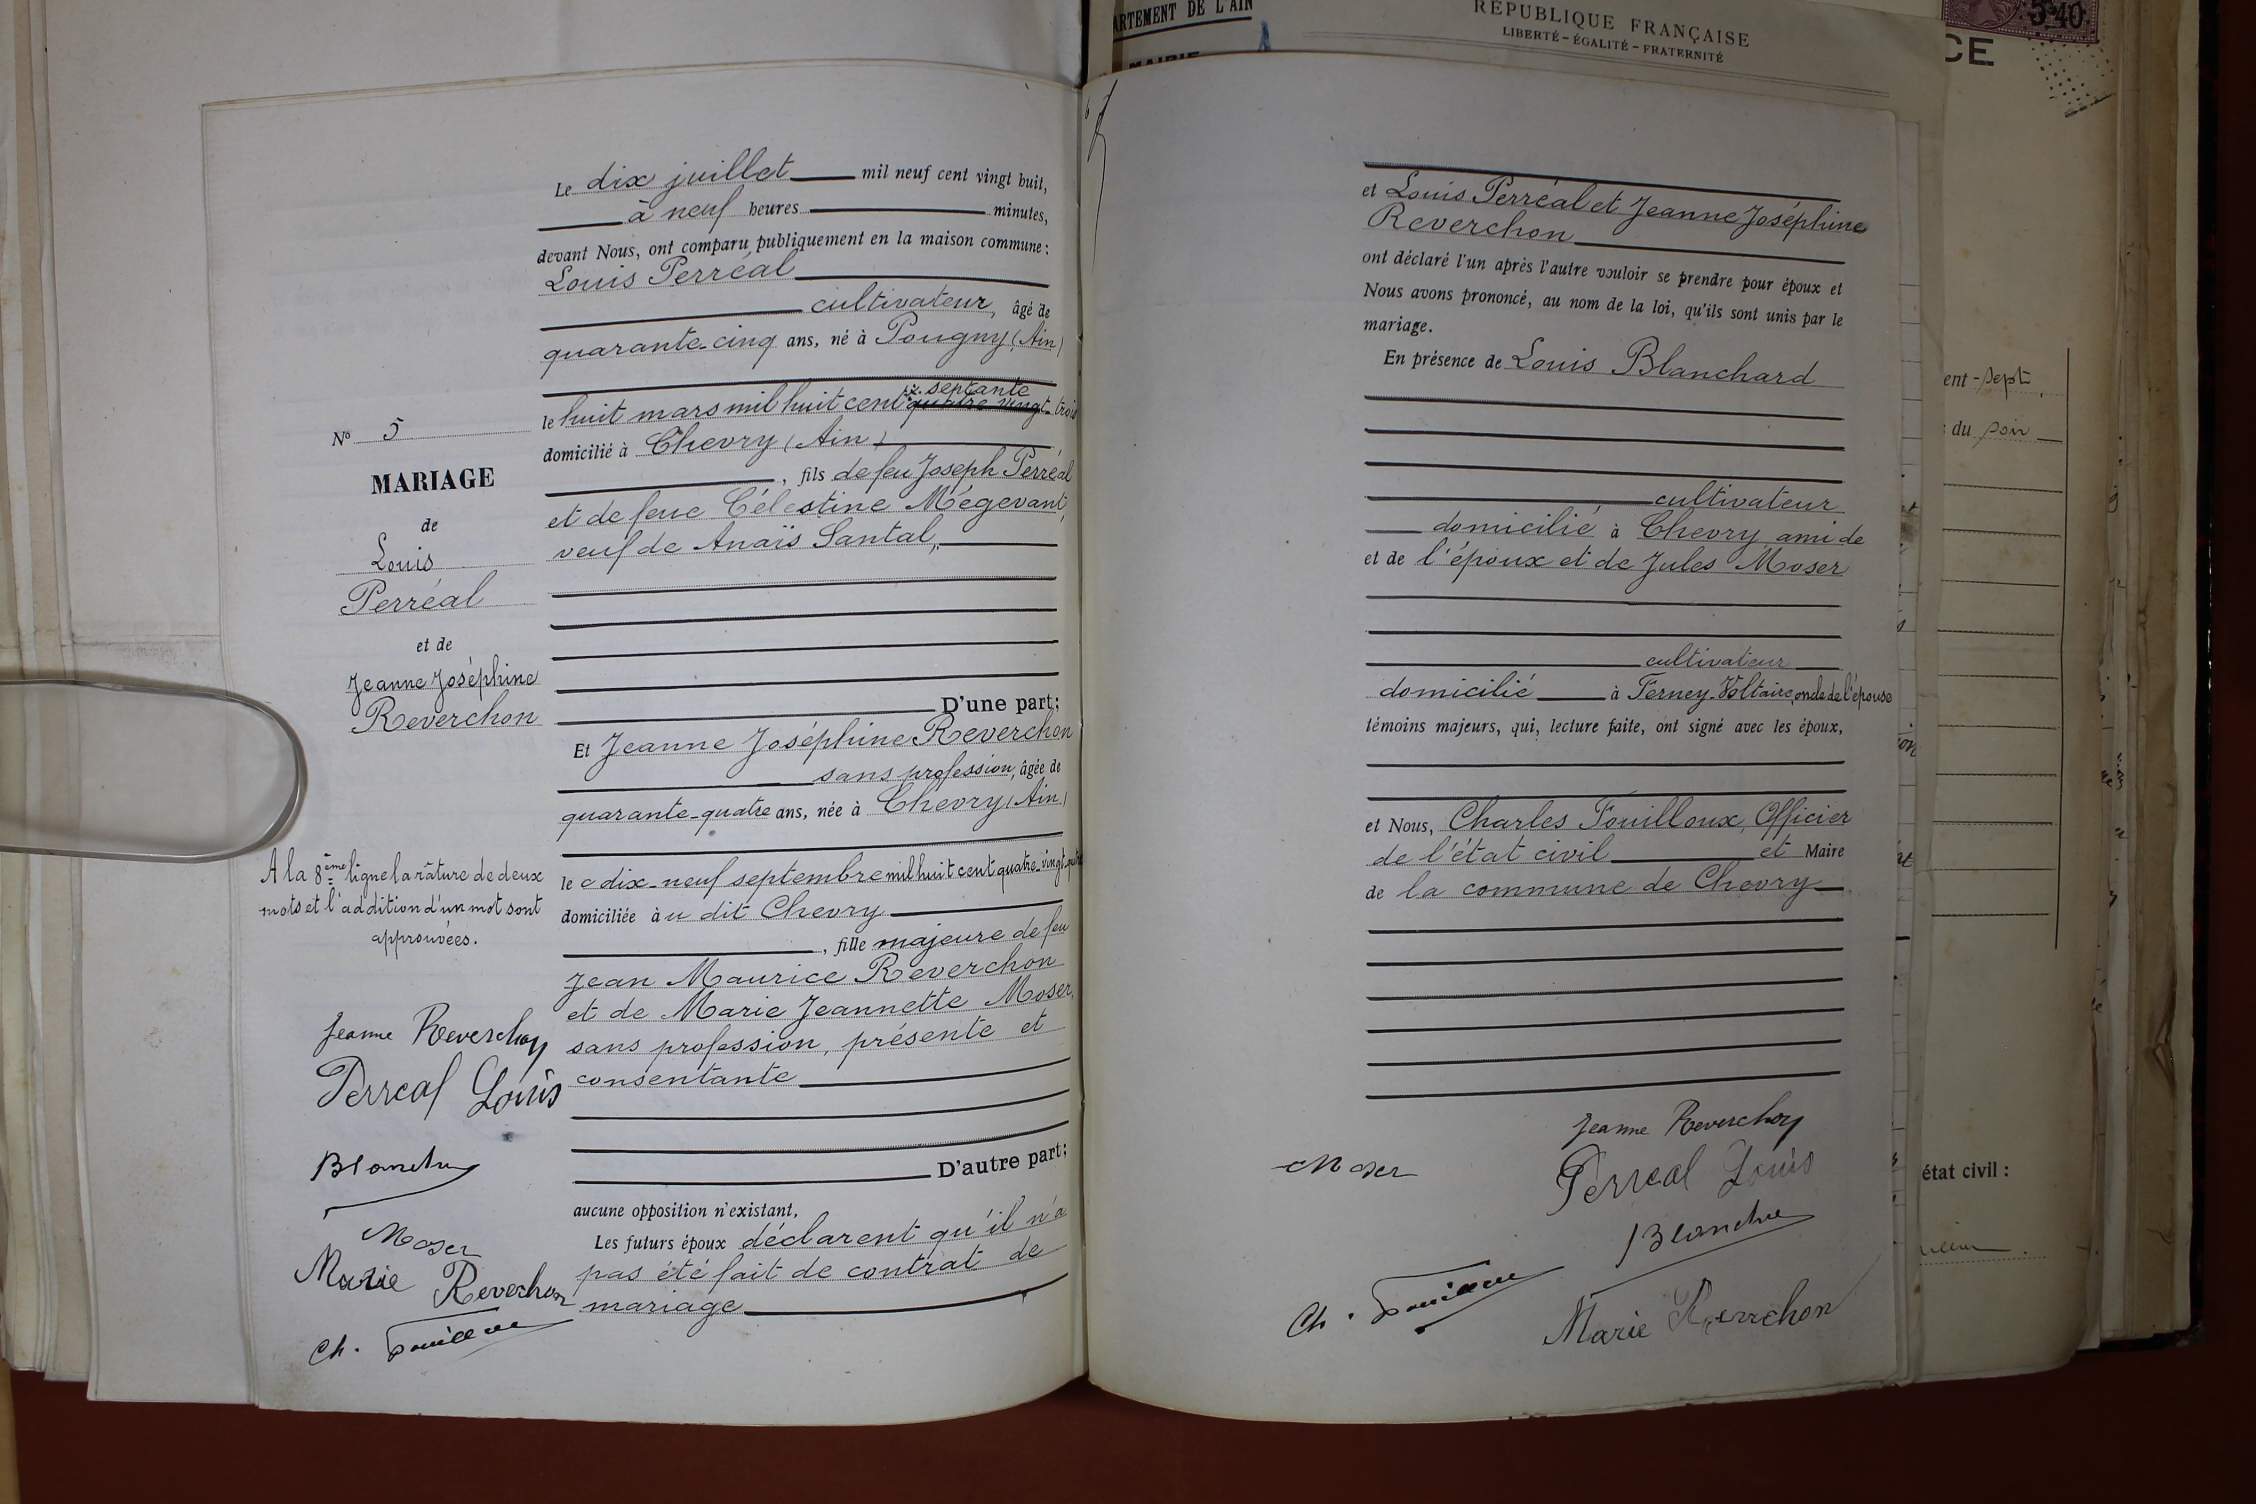 N° 5
MARIAGE
de
Louis
Perréal
et de
Jeanne Joséphine
Reverchon
A la 8ème ligne la râture de deux
mots et l'addition d'un mot sont
approuvées.
Jeanne Reverchon
Perreal Louis
Moser
Marie Reverchon
Le dix juillet mil neuf cent vingt huit,
à neuf heures minutes,
devant Nous, ont comparu publiquement en la maison commune :
Louis Perréal
cultivateur, âgé de
quarante-cinq ans, né à Pougny (Ain)
septante
le huit mars mil huit cent quatre vingt-trois
domicilié à Chevry (Ain)
, fils de feu Joseph Perréal
et de feue Célestine Mégevant,
veuf de Anaïs Santal,
D'une part ;
Et Jeanne Joséphine Reverchon
sans profession, âgée de
quarante-quatre ans, née à Chevry (Ain)
le dix-neuf septembre mil huit cent quatre-vingt-quatre
domiciliée à u dit Chevry
, fille majeure de feu
Jean Maurice Reverchon
et de Marie Jeannette Moser,
sans profession, présente et
consentante
D'autre part ;
aucune opposition n'existant,
Les futurs époux déclarent qu'il n'a
pas été fait de contrat de
mariage
et Louis Perréal et Jeanne Joséphine
Reverchon
ont déclaré l'un après l'autre vouloir se prendre pour époux et
Nous avons prononcé, au nom de la loi, qu'ils sont unis par le
mariage.
En présence de Louis Blanchard
cultivateur
domicilié à Chevry ami de
et de l'époux et de Jules Moser
cultivateur
domicilié à Ferney-Voltaire, oncle de l'épouse
témoins majeurs, qui, lecture faite, ont signé avec les époux,
et Nous, Charles Fouilloux, Officier
de l'état civil et Maire
de la commune de Chevry
Jeanne Reverchon
Moser
Perreal Louis
Marie Reverchon
ARTEMENT DE L'AIN
MAIRIE
RÉPUBLIQUE FRANÇAISE
LIBERTÉ - ÉGALITÉ - FRATERNITÉ
CE
ent-sept
du soir
état civil :